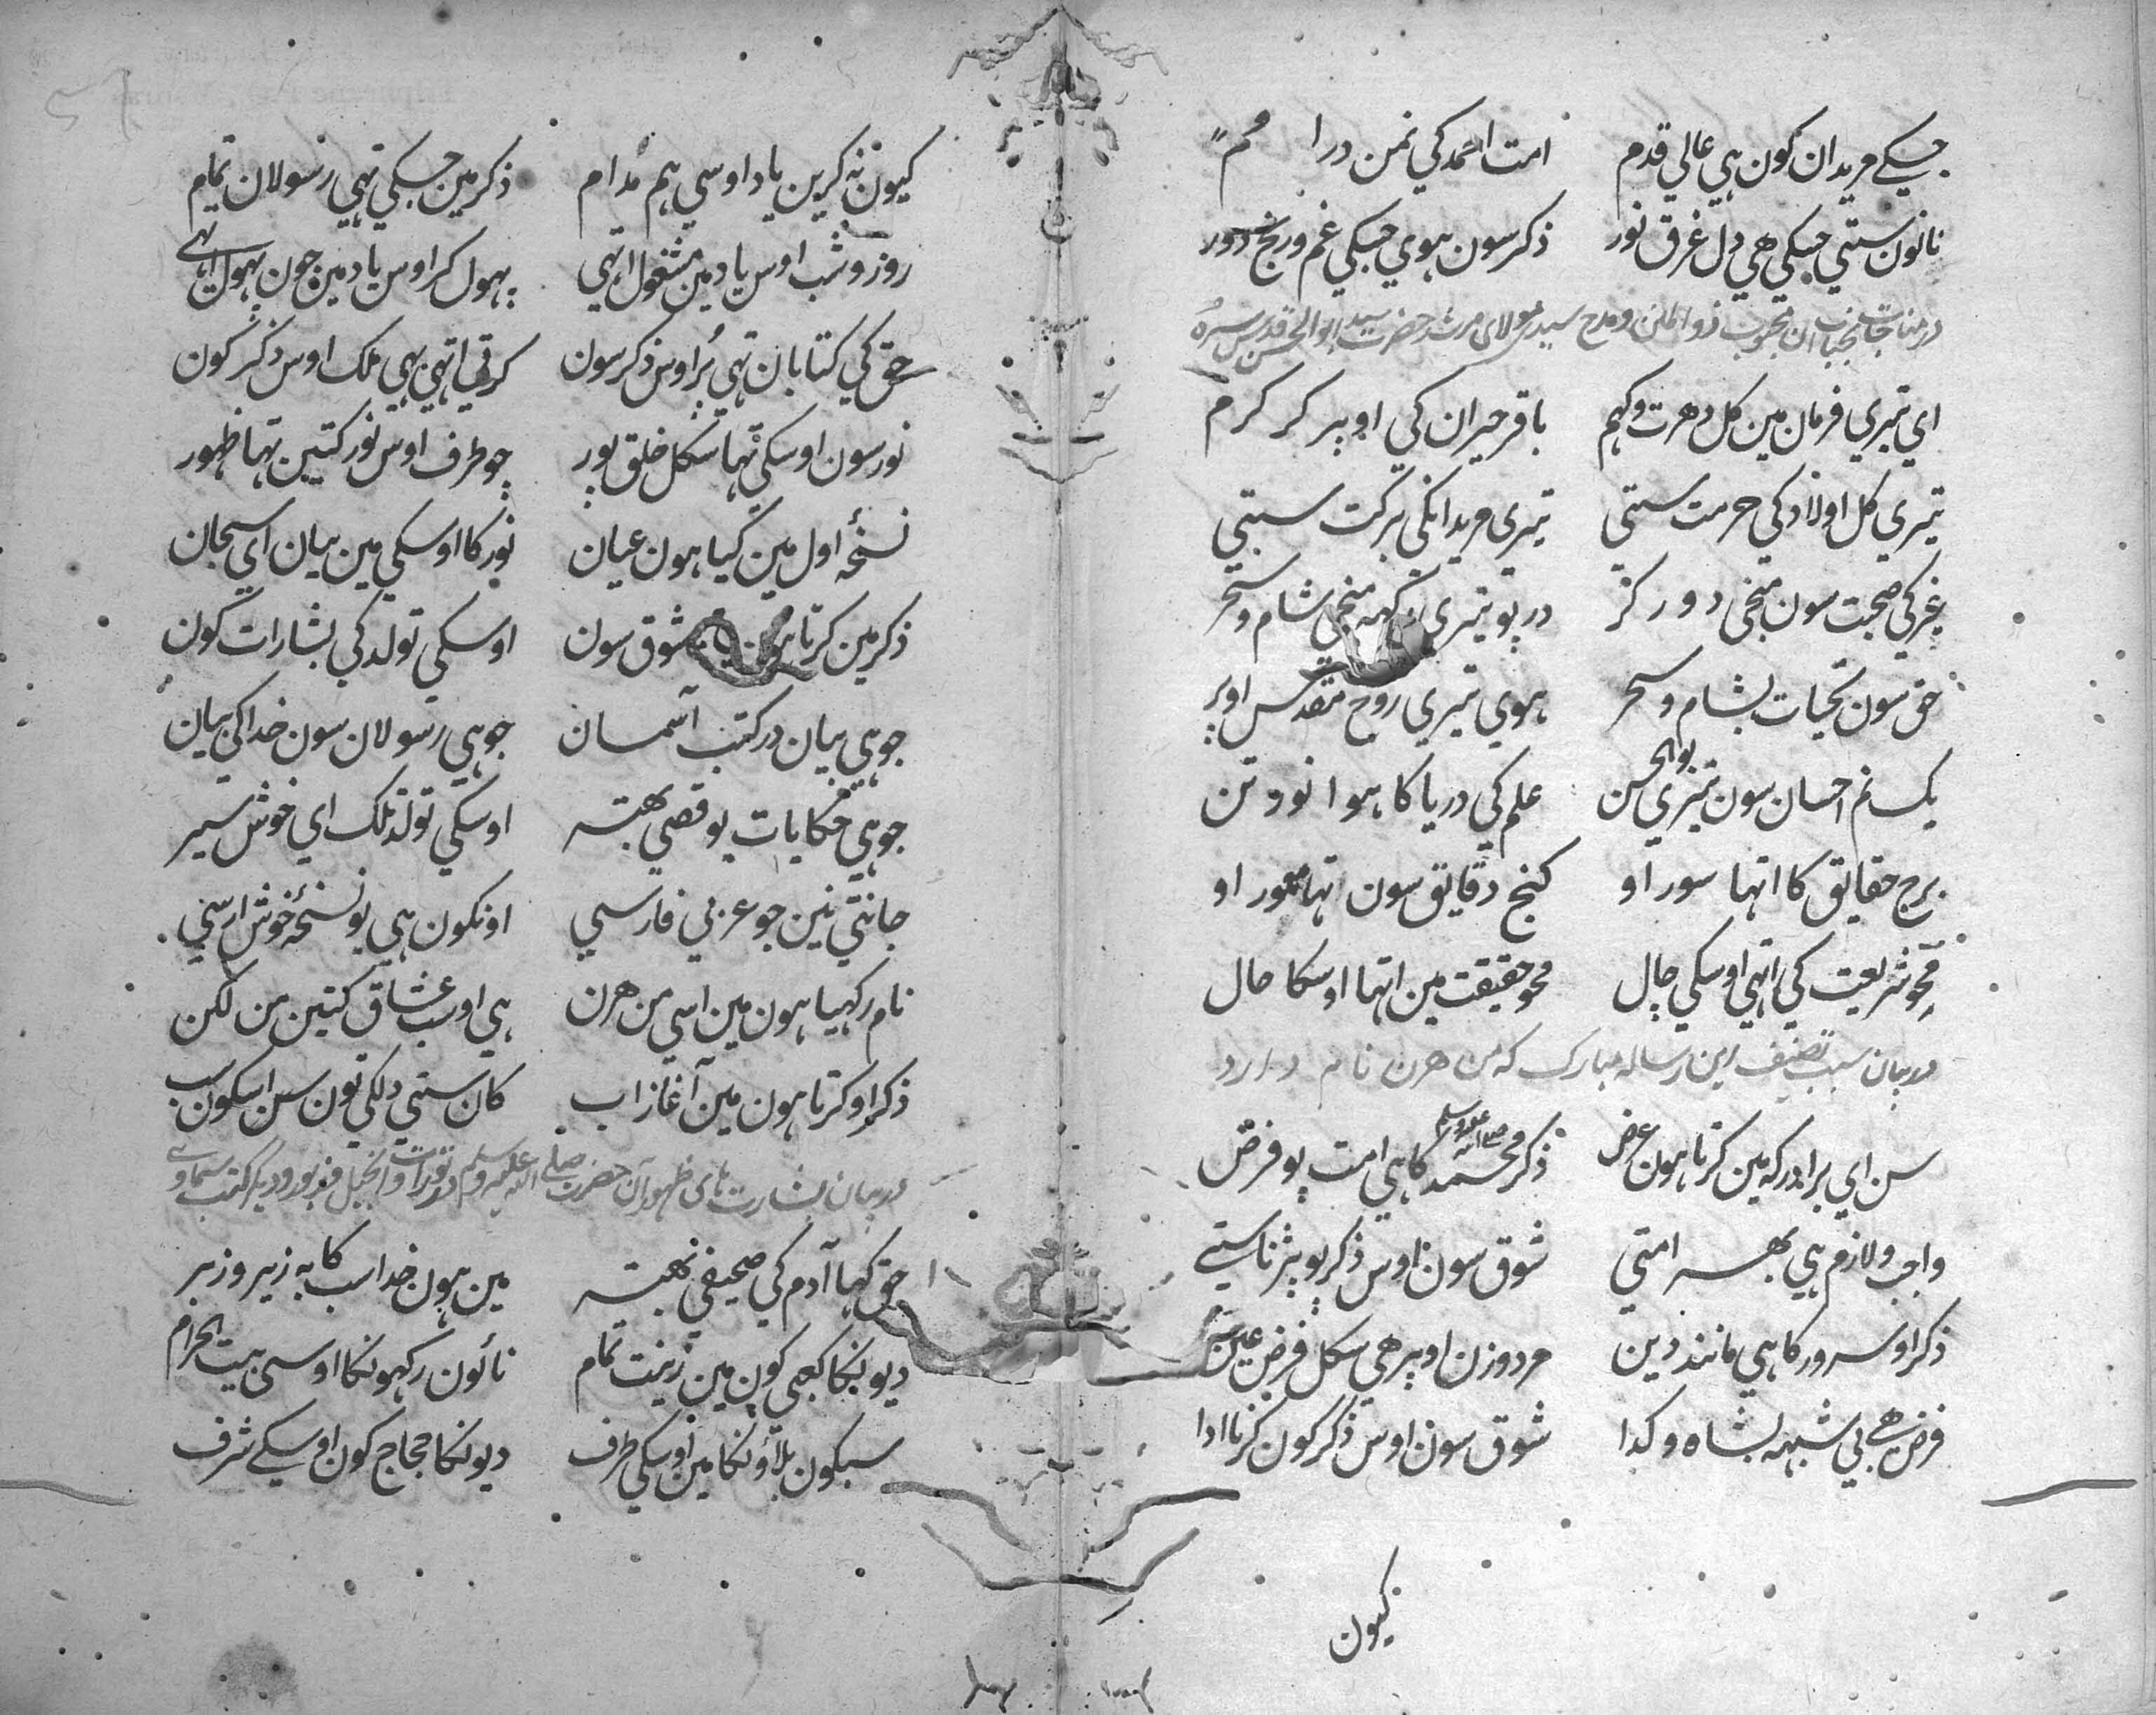 جسکے مریدان کون ہی عالی قدم امت احمد کی نمن در
نانون ستی جسکی هی دل غرق نور ذکر سون ہوی جسکی غم و رنج دور
در مناجات بجناب آن محبوب ذوالمنن و مدح سید مولای مرشد حضرت سید ابوالحسن قدس سره
ای تیری فرمان مین کل دهرت و کہم باقر حیران کی اوپر کر کرم
تیری کل اولاد کی حرمت ستی تیری مریدانکی برکت ستی
غیر کی صحبت سون منجی دور کر در پو تیری رکہہ منجی شام و سحر
حق سون تحیات بشام و سحر ہوی تیری روح مقدس اوپر
یک نم احسان سون تیری بوالحسن علم کی دریا کا ہوا نودتن
برج حقایق کا اتہا سور او کنج دقایق سون اتہا معمور او
محو شریعت کی اتہی اوسکی چال محو حقیقت مین اتہا اوسکا حال
در بیان سبب تصنیف این رساله مبارک که من هرن نام دارد
سن ای برادر که مین کرتا ہون عرض ذکر محمد صلی الله علیه وسلم کا ہی امت پو فرض
واجب و لازم ہی بهر امتی شوق سون اوس ذکر پو پڑنا ستے
ذکر او سرور کا ہی مانند دین مرد و زن اوپر هی سکل فرض عین
فرض هے بی شبہه بشاه و کدا شوق سون اوس ذکر کون کرنا ادا
کیون
کیون نه کرین یاد اوسی ہم مدام ذکر مین جسکی تہی رسولان تمام
روز و شب اوس یاد مین مشغول اتہی بہول کر اوس یاد مین جون پہول اتہے
حق کی کتابان تہی پر اوس ذکر سون کرتی اتہی بهی ملک اوس ذکر کون
نور سون اوسکی تہا سکل خلق پور چو طرف اوس نور کتین تہا ظہور
نسخۂ اول مین کیا ہون عیان نور کا اوسکی مین بیان ای سجان
ذکر مین کرتا ہون شوق سون اوسکی تولد کی بشارات کون
جو ہی بیان در کتب آسمان جو ہی رسولان سون خدا کی بیان
جو ہی حکایات یو قصی بهتر اوسکی تولد تلک ای خوش سیر
جانتی نین جو عربی فارسی اونکون ہی یو نسخۂ خوش ارسی
نام رکہیا ہون مین اسی من هرن ہی او سب عشاق کتین من لکن
ذکر او کرتا ہون مین آغاز اب کان ستی دلکی تون سن اسکون سب
در بیان بشارت ہای ظہور آن حضرت صلی الله علیه وسلم در تورات و انجیل و زبور و دیگر کتب سماوی
حق کہا آدم کی صحیفی بهتر مین ہون خدا سب کا به زیر و زبر
دیونکا کعبی کون مین زینت تمام نانون رکہونکا اوسی بیت الحرام
سبکون بلاؤنکا مین اوسکی طرف دیونکا حجاج کون اوسکے شرف